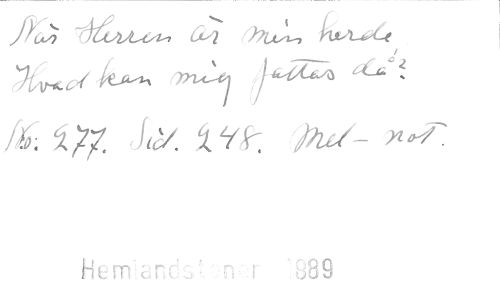 När Herren är min herde
Hvad kan mig fattas då?
No: 277. Sid. 248. Mel - not.
Hemlandstoner 1889